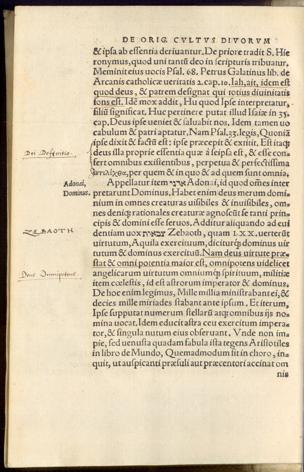 DE ORIG. CVLTVS DIVORVM
& ipsa ab essentia deriuantur. De priore tradit S. Hie
ronymus, quod uni tantū deo in scripturis tribuatur.
Meminit eius uocis Psal. 68. Petrus Galatinus lib. de
Arcanis catholicæ ueritatis 2. cap. 10. Iah, ait, idem est
quod deus, & patrem designat qui totius diuinitatis
fons est. Idē mox addit, Hu quod Ipse interpretatur,
filiū significat. Huc pertinere putat illud Isaiæ in 35.
cap. Deus ipse ueniet & saluabit nos. Idem tamen uo
cabulum & patri aptatur. Nam Psal. 33. legis, Quoniā
ipse dixit & factū est: ipse præcepit & extitit. Est itaq;
deus illa proprie essentia quæ à seipsa est, & esse con
Dei Definitio.
fert omnibus existentibus, perpetua & perfectissima
per quem & in quo & ad quem sunt omnia.
Adonai,
Appellatur item אדני Adonai, id quod omnes inter
Dominus.
pretarunt Dominus. Habet enim deus merum domi
nium in omnes creaturas uisibiles & inuisibiles, om
nes deniq; rationales creaturæ agnoscūt se tanti prin
cipis & domini esse seruos. Additur aliquando ad eui
ZEBAOTH
dentiam uox צבאות Zebaoth, quam LXX. uerterūt
uirtutum, Aquila exercituum, diciturq; dominus uir
tutum & dominus exercituū. Nam deus uirtute præ
Deus Omnipotens.
stat & omni potentia maior est, omnipotens uidelicet
angelicarum uirtutum omniumq; spirituum, militiæ
item cœlestis, id est astrorum imperator & dominus.
De hoc enim legimus, Mille millia ministrabant ei, &
decies mille miriades stabant ante ipsum. Et iterum,
Ipse supputat numerum stellarū atq; omnibus ijs no
mina uocat. Idem educit astra ceu exercitum impera
tor, & singula nutum eius obseruant. Vnde non im-
pie, sed uenusta quadam fabula ista tegens Aristotiles
in libro de Mundo, Quemadmodum sit in choro, in-
quit, ut auspicanti præsuli aut præcentori accinat om
nis